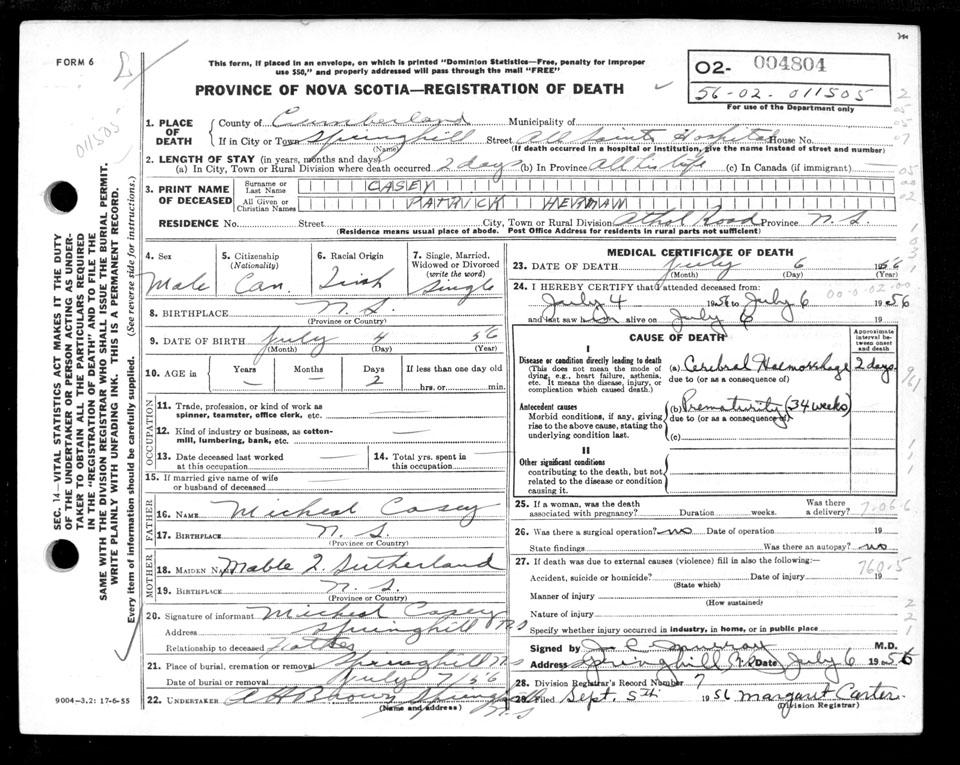 FORM 6
This form, if placed in an envelope, on which is printed "Dominion Statistics—Free, penalty for improper
use $50," and properly addressed will pass through the mail "FREE"
02- 004804
56-02-011505
For use of the Department only
PROVINCE OF NOVA SCOTIA—REGISTRATION OF DEATH
011505
SEC. 14—VITAL STATISTICS ACT MAKES IT THE DUTY
OF THE UNDERTAKER OR PERSON ACTING AS UNDER-
TAKER TO OBTAIN ALL THE PARTICULARS REQUIRED
IN THE "REGISTRATION OF DEATH" AND TO FILE THE
SAME WITH THE DIVISION REGISTRAR WHO SHALL ISSUE THE BURIAL PERMIT.
WRITE PLAINLY WITH UNFADING INK. THIS IS A PERMANENT RECORD.
Every item of information should be carefully supplied. (See reverse side for instructions.)
1. PLACE OF DEATH
County of Cumberland Municipality of
If in City or Town Springhill Street All Saints Hospital House No.
(Name) (If death occurred in a hospital or institution, give the name instead of street and number)
2. LENGTH OF STAY (in years, months and days)
(a) In City, Town or Rural Division where death occurred 2 days (b) In Province All his life (c) In Canada (if immigrant)
3. PRINT NAME OF DECEASED
Surname or Last Name CASEY
All Given or Christian Names PATRICK HERMAN
RESIDENCE No. Street City, Town or Rural Division Athol Road Province N.S.
(Residence means usual place of abode. Post Office Address for residents in rural parts not sufficient)
4. Sex 5. Citizenship (Nationality) 6. Racial Origin 7. Single, Married, Widowed or Divorced (write the word)
Male Can. Irish Single
8. BIRTHPLACE N.S.
(Province or Country)
9. DATE OF BIRTH July 4 56
(Month) (Day) (Year)
10. AGE in Years Months Days If less than one day old
— — 2 hrs. or min.
OCCUPATION
11. Trade, profession, or kind of work as
spinner, teamster, office clerk, etc. —
12. Kind of industry or business, as cotton-
mill, lumbering, bank, etc. —
13. Date deceased last worked at this occupation — 14. Total yrs. spent in this occupation —
15. If married give name of wife
or husband of deceased —
FATHER
16. NAME Micheal Casey
17. BIRTHPLACE N.S.
(Province or Country)
MOTHER
18. MAIDEN NAME Mable I. Sutherland
19. BIRTHPLACE N.S.
(Province or Country)
20. Signature of informant Micheal Casey
Address Springhill NS
Relationship to deceased Father
21. Place of burial, cremation or removal Springhill NS
Date of burial or removal July 7/56
22. UNDERTAKER A H Brown Springhill
(Name and address) N.S
9004—3.2: 17-6-55
MEDICAL CERTIFICATE OF DEATH
23. DATE OF DEATH July 6 1956
(Month) (Day)
24. I HEREBY CERTIFY that I attended deceased from:
00-0-02-00
July 4 1956 to July 6 1956
and last saw him alive on July 6 19
CAUSE OF DEATH
Approximate interval between onset and death
I
Disease or condition directly leading to death
(This does not mean the mode of
dying, e.g., heart failure, asthenia,
etc. It means the disease, injury, or
complication which caused death.)
(a) Cerebral Haemorrhage 2 days
due to (or as a consequence of)
Antecedent causes
Morbid conditions, if any, giving
rise to the above cause, stating the
underlying condition last.
(b) Prematurity (34 weeks)
due to (or as a consequence of)
(c)
II
Other significant conditions
contributing to the death, but not
related to the disease or condition
causing it.
25. If a woman, was the death
associated with pregnancy? Duration weeks. Was there a delivery?
7-06-6
26. Was there a surgical operation? no Date of operation 19
State findings Was there an autopsy? no
27. If death was due to external causes (violence) fill in also the following:—
760.5
Accident, suicide or homicide? Date of injury 19
(State which)
Manner of injury
(How sustained)
Nature of injury
Specify whether injury occurred in industry, in home, or in public place
Signed by J. C. Murray M.D.
Address Springhill, N.S. Date July 6 1956
28. Division Registrar's Record Number 7
29. Filed Sept. 5th 1956 Margaret Carter
(Division Registrar)